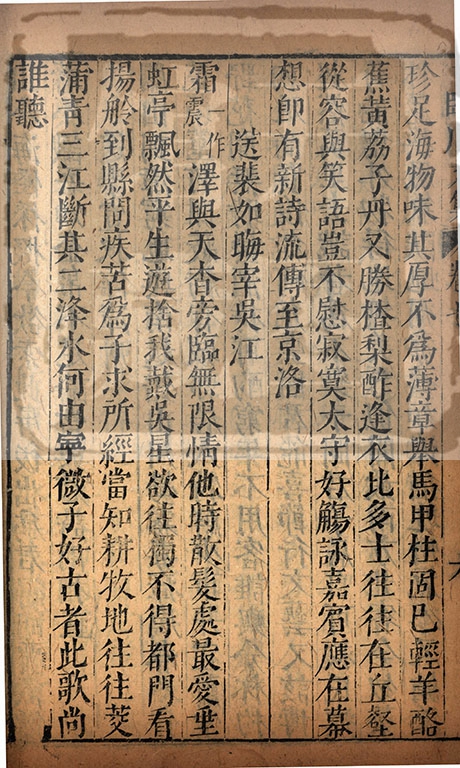 珍足海物味其厚不爲薄章舉馬甲柱固已輕羊酪
蕉黃荔子丹又勝楂梨酢逢衣比多士往往在丘壑
從容與笑語豈不慰寂寞太守好觴詠嘉賓應在幕
想即有新詩流傳至京洛
送裴如晦宰吳江
霜一作震澤與天杳旁臨無限情他時散髮處最愛垂
虹亭飄然平生遊捨我戴吳星欲往獨不得都門看
揚舲到縣問疾苦爲子求所經當知耕牧地往往茭
蒲青三江斷其二洚水何由寧微子好古者此歌尚
誰聽